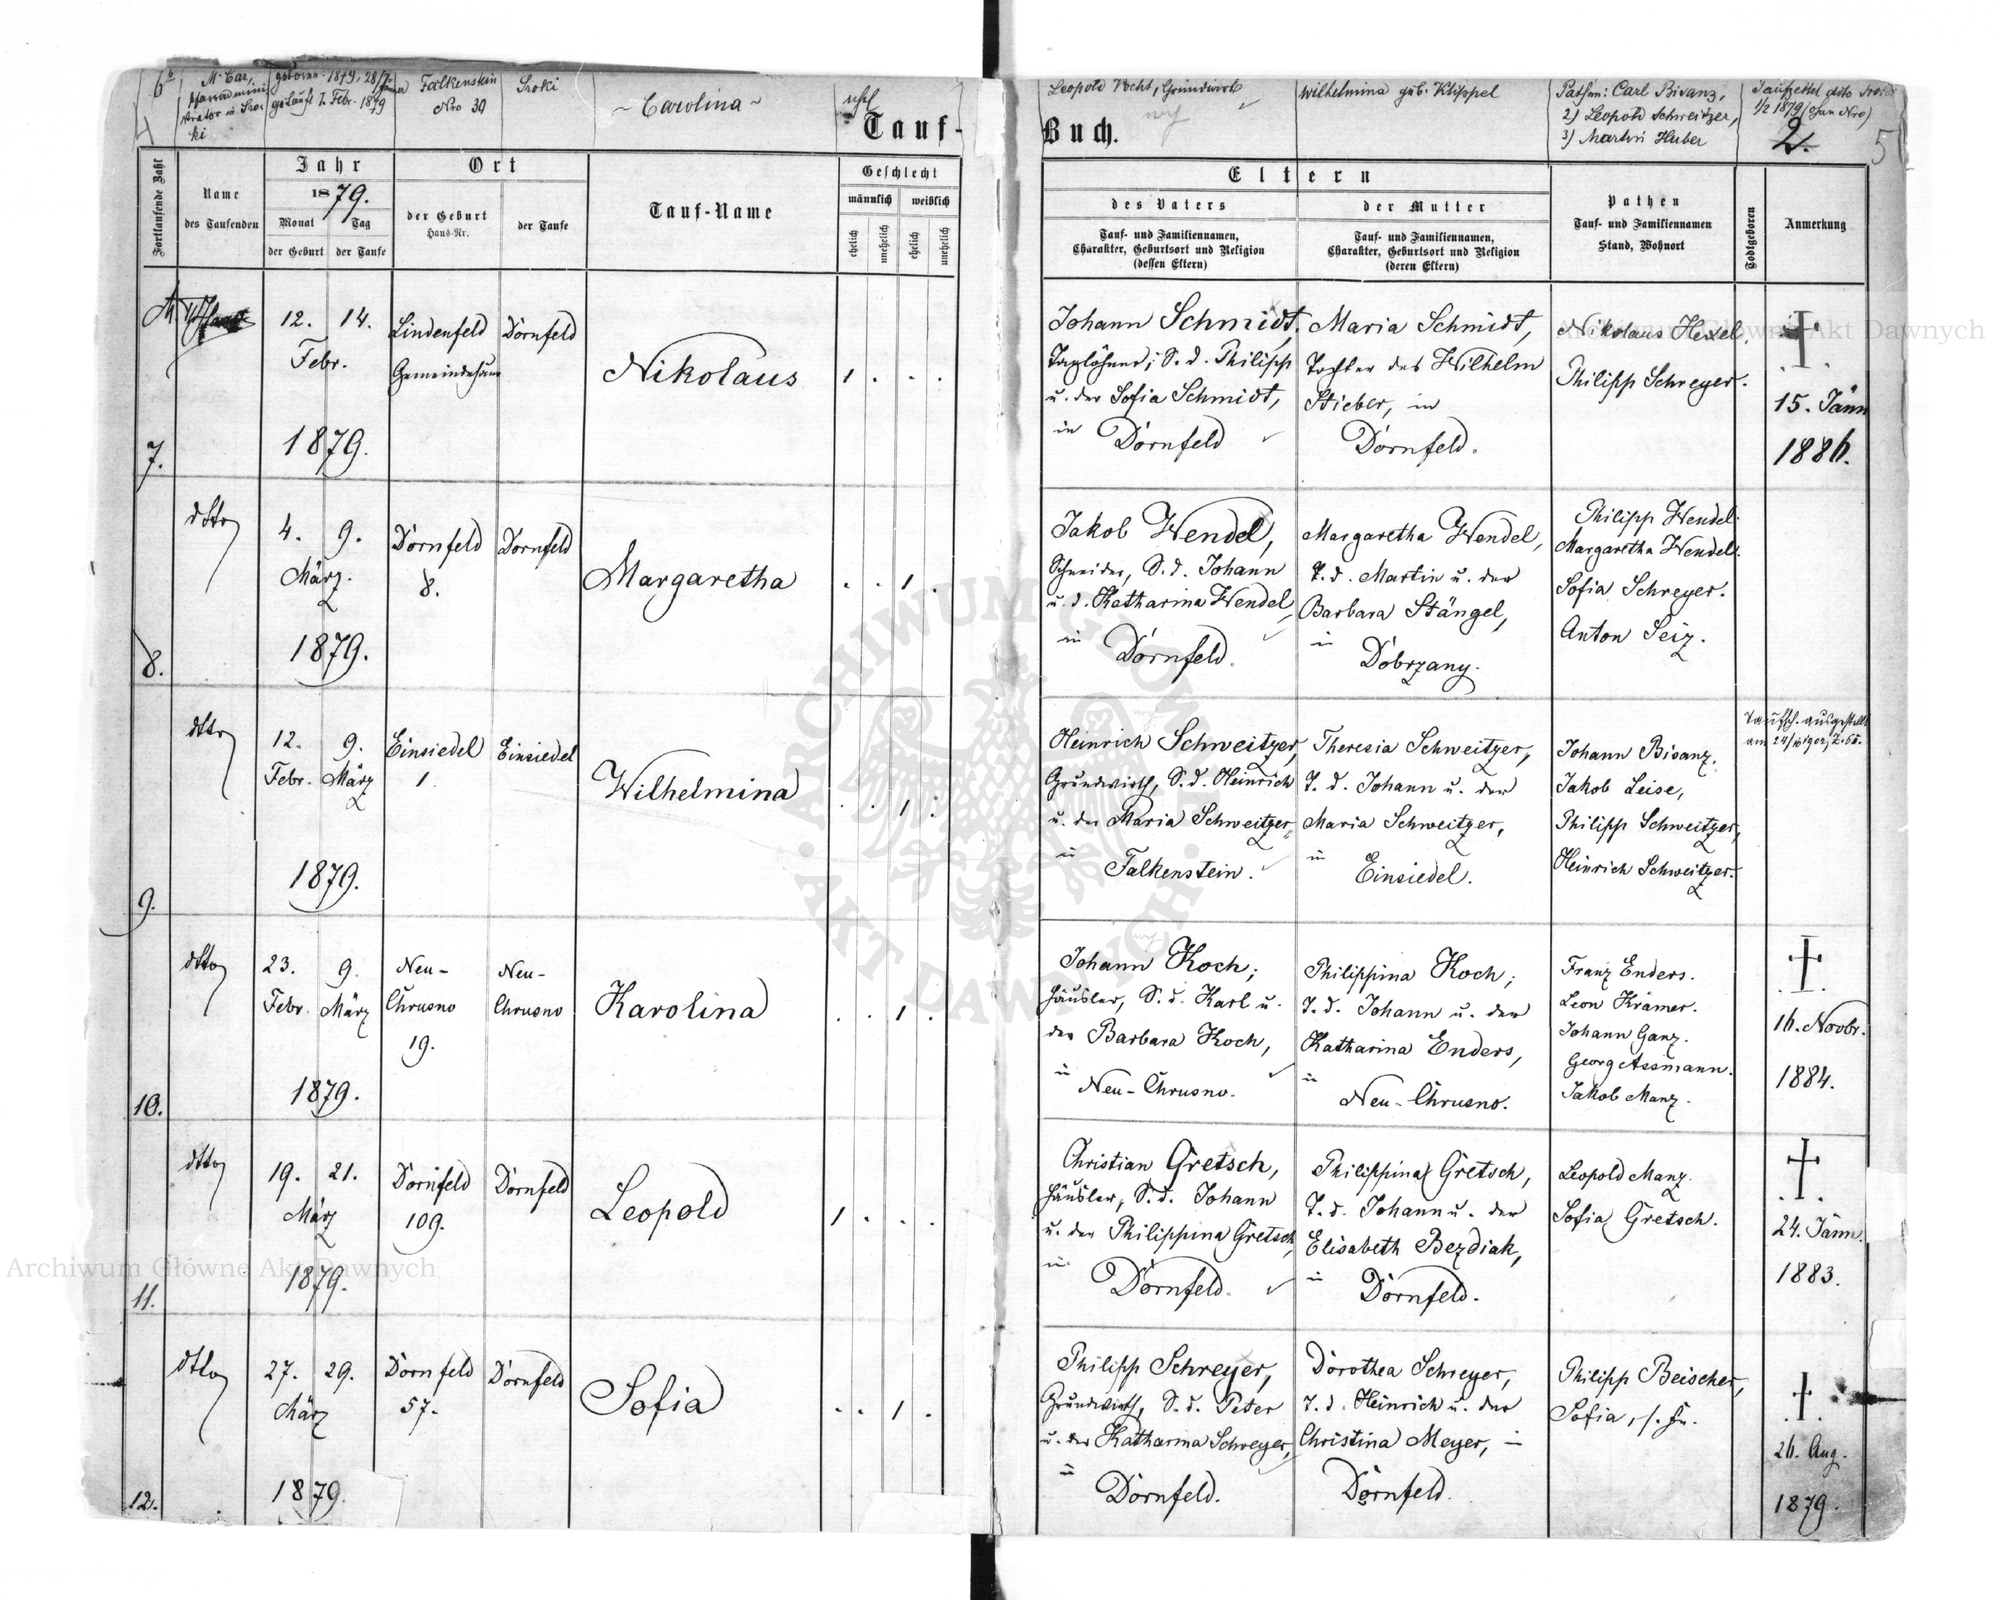 6b
M. Car,
Pfarradmini
strator in Sro
ki
geboren: 1879, 28/7
Jänner
getauft 1. Febr. 1879
Falkenstein
Nro 30
Sroki
~ Carolina ~
Tauf-
Fortlaufende Zahl
Name
des Taufenden
Jahr
1879.
Monat
Tag
der Geburt
der Taufe
Ort
der Geburt
Haus-Nr.
der Taufe
Tauf-Name
Geschlecht
männlich
weiblich
ehelich
unehelich
ehelich
unehelich
12. 14.
Febr.
1879.
Lindenfeld
Gemeindehaus
Dornfeld
Nikolaus
1 . . .
7.
dtto
4. 9.
März.
1879.
Dornfeld
8.
Dornfeld
Margaretha
. . 1 .
8.
dtto
12. 9.
Febr. März
1879.
Einsiedel
1.
Einsiedel
Wilhelmina
. . 1 .
9.
dtto
23. 9.
Febr. März
1879.
Neu-
Chrusno
19.
Neu-
Chrusno
Karolina
. . 1 .
10.
dtto
19. 21.
März
1879.
Dornfeld
109.
Dornfeld
Leopold
1 . . .
11.
dtto
27. 29.
März
1879.
Dornfeld
57.
Dornfeld
Sofia
. . 1 .
12.
Leopold Kocht, Grundwirth
Wilhelmina geb. Klippel
Pathen: Carl Bisanz,
2) Leopold Schweitzer,
3) Martin Huber
Taufzettel dtto Sroki
1/2 1879 (ohne Nro)
Buch.
2.
5
Eltern
des Vaters
Tauf- und Familiennamen,
Charakter, Geburtsort und Religion
(dessen Eltern)
der Mutter
Tauf- und Familiennamen,
Charakter, Geburtsort und Religion
(deren Eltern)
Pathen
Tauf- und Familiennamen
Stand, Wohnort
Todtgeboren
Anmerkung
Johann Schmidt,
Taglöhner, S. d. Philipp
u. der Sofia Schmidt,
in Dornfeld
Maria Schmidt,
Tochter des Wilhelm
Stieber, in
Dornfeld.
Nikolaus Hexel.
Philipp Schreyer.
15. Jänn
1886.
Jakob Wendel,
Schneider, S. d. Johann
u. d. Katharina Wendel,
in Dornfeld.
Margaretha Wendel,
T. d. Martin u. der
Barbara Stängel,
in Dobrzany.
Philipp Wendel.
Margaretha Wendel.
Sofia Schreyer.
Anton Seiz.
Heinrich Schweitzer,
Grundwirth, S. d. Heinrich
u. der Maria Schweitzer,
in
Falkenstein.
Theresia Schweitzer,
T. d. Johann u. der
Maria Schweitzer,
in
Einsiedel.
Johann Bisanz.
Jakob Leise,
Philipp Schweitzer,
Heinrich Schweitzer.
Taufsch. ausgestellt
Johann Koch;
Häusler, S. d. Karl u.
der Barbara Koch,
in
Neu-Chrusno.
Philippina Koch;
T. d. Johann u. der
Katharina Enders,
in
Neu-Chrusno.
Franz Enders.
Leon Krämer.
Johann Ganz.
Georg Assmann.
Jakob Manz.
16. Novbr.
1884.
Christian Gretsch,
Häusler, S. d. Johann
u. der Philippina Gretsch,
in
Dornfeld.
Philippina Gretsch,
T. d. Johann u. der
Elisabeth Bezdiak,
in
Dornfeld.
Leopold Manz.
Sofia Gretsch.
24. Jänn.
1883.
Philipp Schreyer,
Grundwirth, S. d. Peter
u. der Katharina Schreyer,
in
Dornfeld.
Dorothea Schreyer,
T. d. Heinrich u. der
Christina Meyer, in
Dornfeld.
Philipp Beischer,
Sofia, s. Fr.
26. Aug.
1879.
Archiwum Główne Akt Dawnych
Archiwum Główne Akt Dawnych
ARCHIWUM GŁÓWNE · AKT DAWNYCH ·